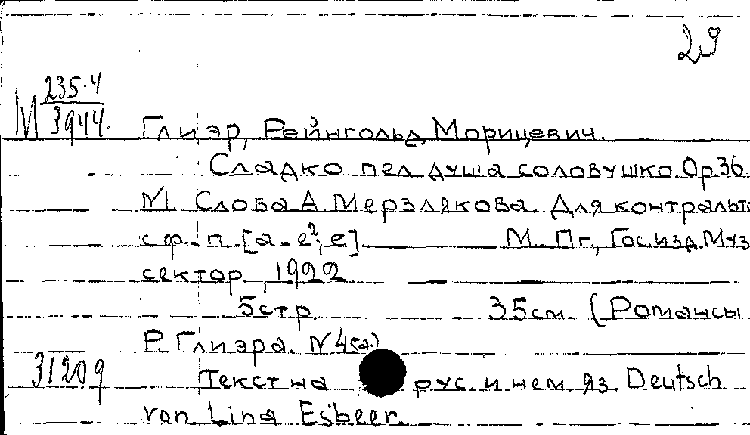 29
М 235.4
3944.
Глиэр, Рейнгольд Морицевич.
Сладко пел душа соловушко. Op 36
N1. Слова А. Мерзлякова. Для контральт
с ф-п. [a-e², e] М.-Пг, Гос. изд. Муз
сектор, 1922
5 стр. 35 см. (Романсы
Р. Глиэра. N 4(а.)
31209 Текст на рус. и нем. яз. Deutsch
von Lina Esbeer.